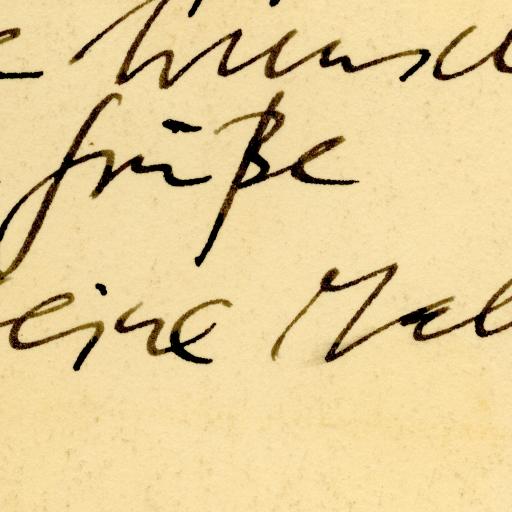 Wünsc
Grüße
eine Mal